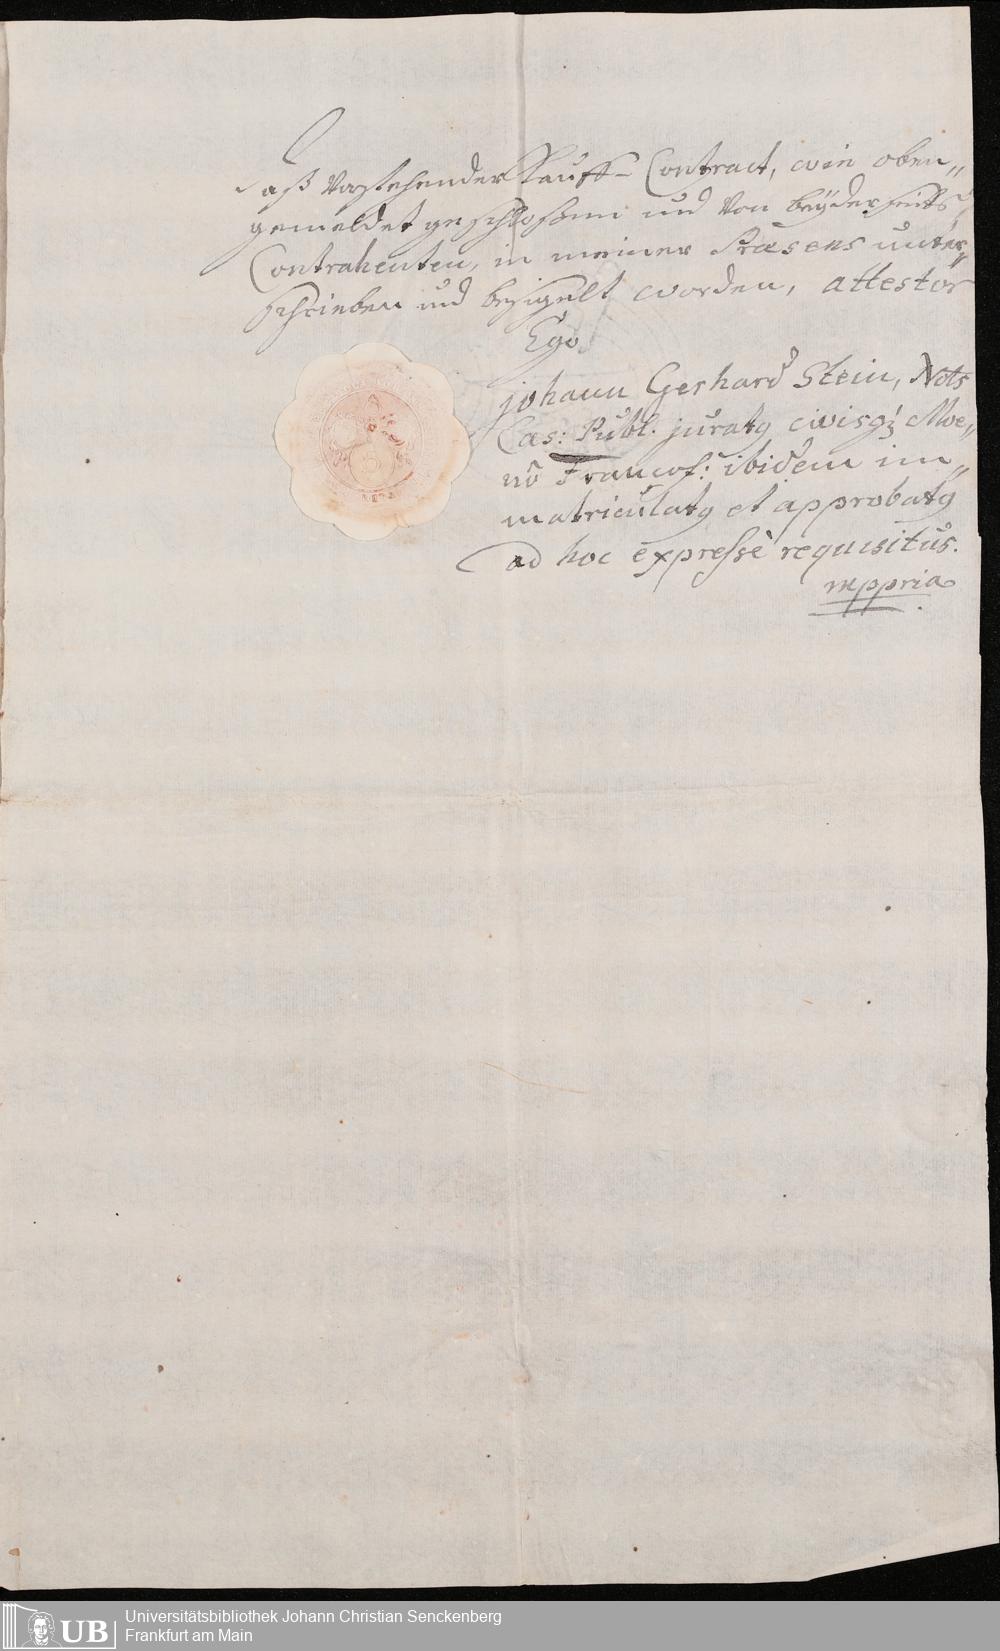 Daß vorstehender Kauff-Contract, wie oben„
gemeldet geschloßen und von beÿderseits
Contrahenten, in meiner Præsens unter„
schrieben und besigelt worden, attestor
Ego
Johann Gerhard Stein, Nots
Cas: Publ. juratq civisq; Moe„
nô Francof: ibidem im„
matriculatq et approbatq
ad hoc expresse requisitus.
mppria
UB
Universitätsbibliothek Johann Christian Senckenberg
Frankfurt am Main